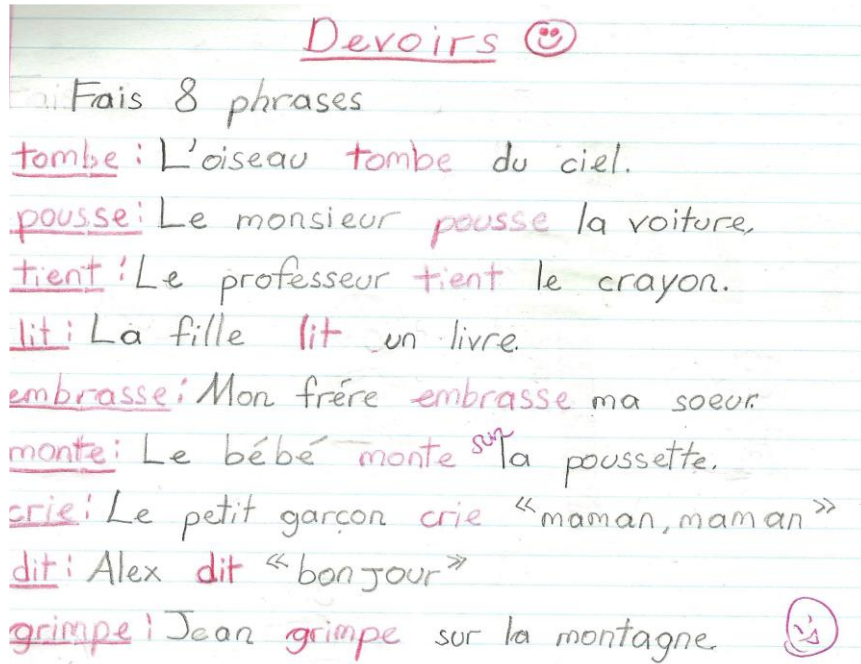 Devoirs
Fais 8 phrases
tombe : L'oiseau tombe du ciel.
pousse : Le monsieur pousse la voiture,
tient : Le professeur tient le crayon.
lit : La fille lit un livre.
embrasse : Mon frére embrasse ma soeur.
monte : Le bébé monte sur la poussette.
crie : Le petit garçon crie «maman, maman»
dit : Alex dit «bonjour»
grimpe : Jean grimpe sur la montagne.